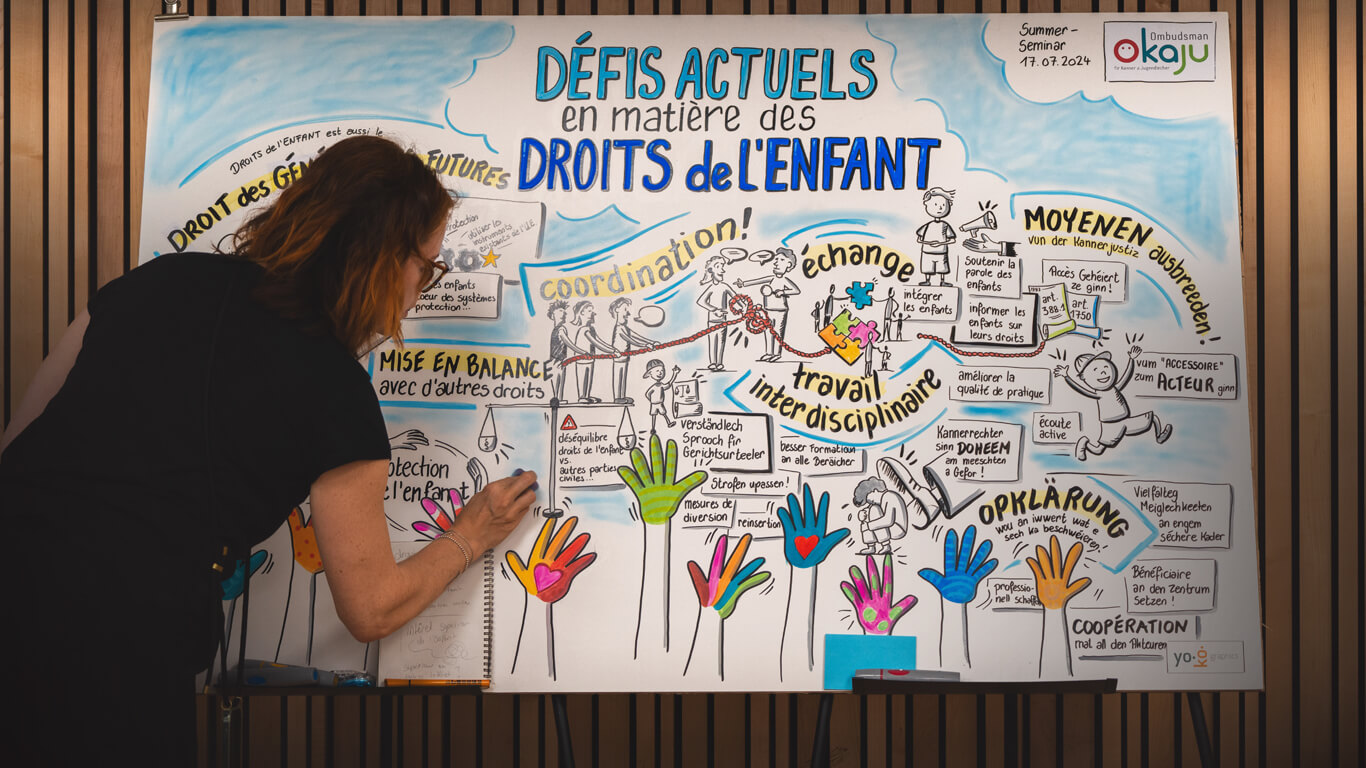 DÉFIS ACTUELS
en matière des
DROITS de L'ENFANT
Summer-
Seminar
17.07.2024
Ombudsman
Okaju
fir Kanner a Jugendlecher
DROITS de l'ENFANT est aussi le
DROIT des
FUTURES
protection
utiliser les
instruments
existants de l'UE
enfants
coeur des systèmes
protection...
coordination!
échange
intégrer
les enfants
Soutenir la
parole des
enfants
informer les
enfants sur
leurs droits
MOYENEN ausbreeden!
vun der Kannerjustiz
Accès Gehéiert
ze ginn!
art.
388.1
art.
1750
MISE EN BALANCE
avec d'autres droits
travail
interdisciplinaire
améliorer la
qualité de pratique
écoute
active
vum "ACCESSOIRE"
zum ACTEUR ginn
déséquilibre
droits de l'enfant
vs.
autres parties
civiles...
verständlech
Sprooch fir
Gerichtsurteeler
besser Formatioun
an alle Beräicher
Strofen upassen!
mesures de
diversion
reinsertion
Kannerrechter
sinn DOHEEM
am meeschten
a Gefor!
l'enfant
OPKLÄRUNG
wou an iwwert wat e
sech ka beschwéieren!
Vielfälteg
Méiglechkeeten
an engem
séchere Kader
professio-
nell
Bénéficiaire
an den Zentrum
setzen!
COOPÉRATION
mat all den Akteuren
yo·kó graphics